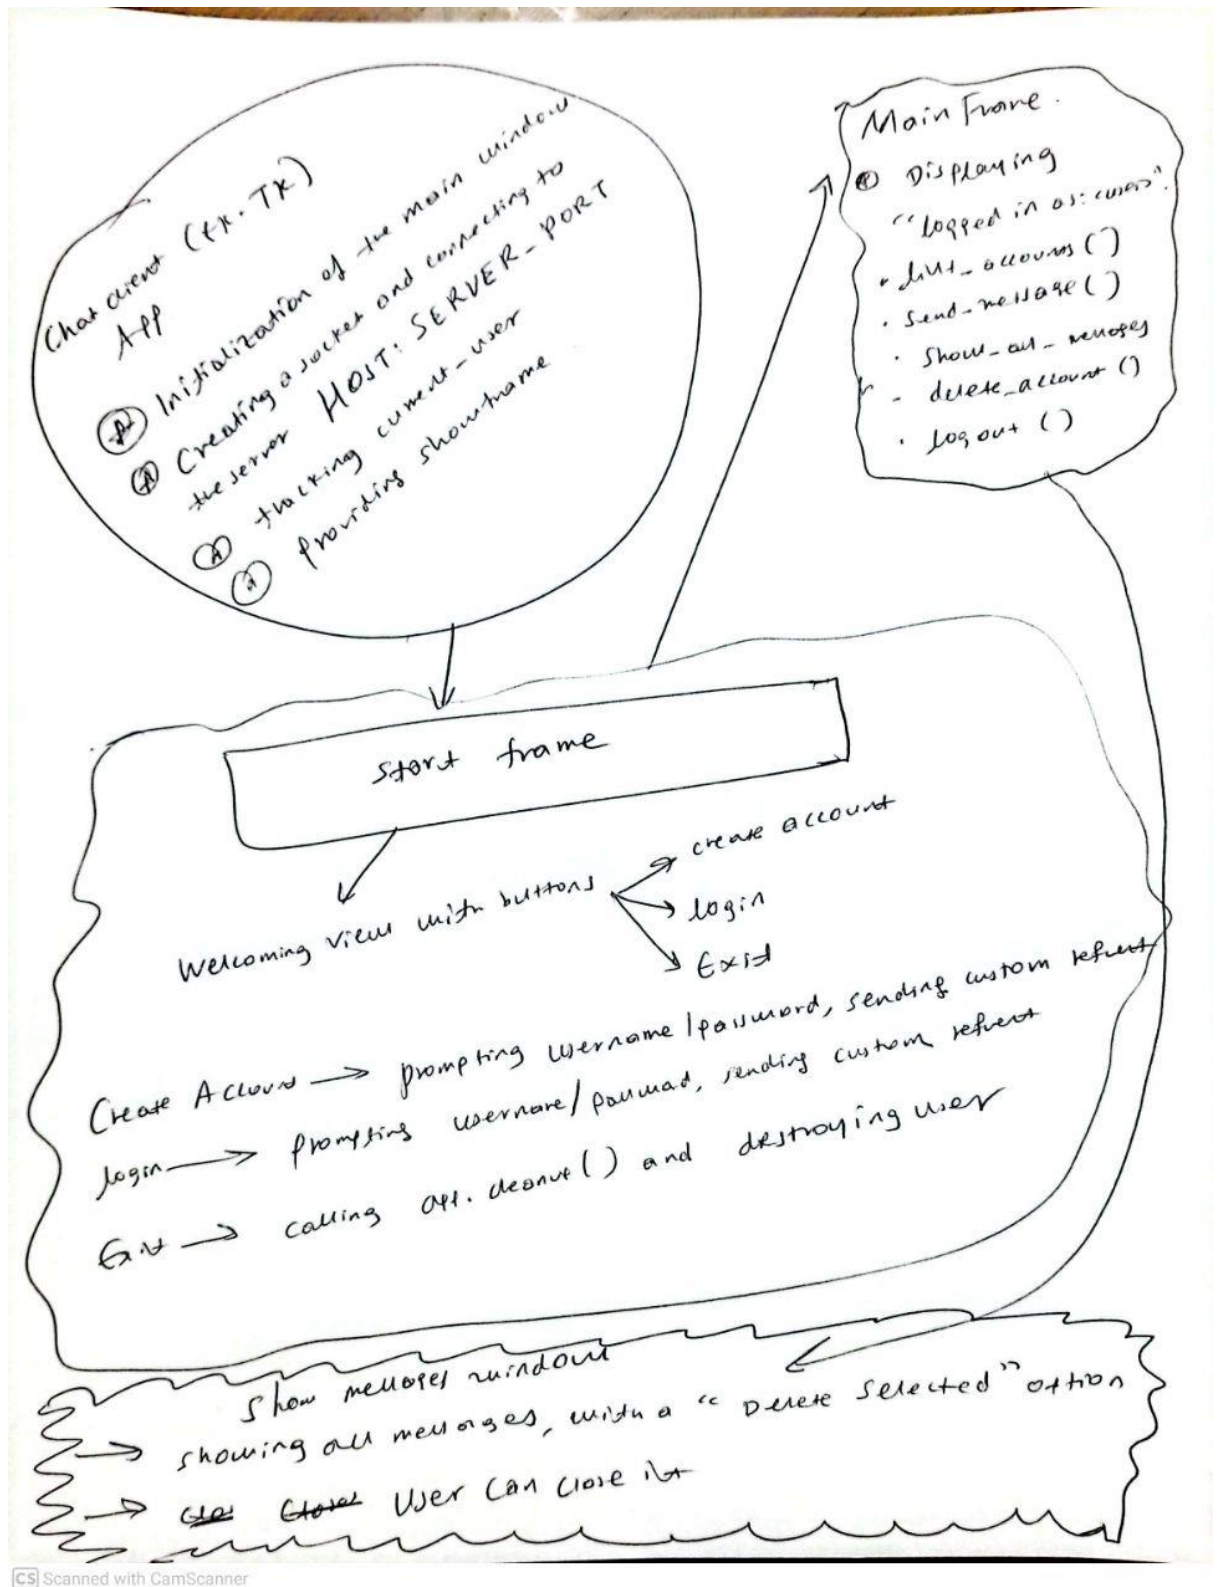 Chat client (tk.TK)
App
Initialization of the main window
Creating a socket and connecting to
the server HOST: SERVER_PORT
tracking current_user
Providing showframe
Main Frame.
Displaying
"logged in as: <user>".
list_accounts()
send_message()
show_all_messages
delete_account()
logout()
Start frame
Welcoming view with buttons
create account
login
Exit
Create Account → prompting username/password, sending custom request
login → prompting username/password, sending custom request
Exit → calling app.cleanup() and destroying user
Show messages window
→ showing all messages, with a "Delete Selected" option
→ User can close it
CS Scanned with CamScanner